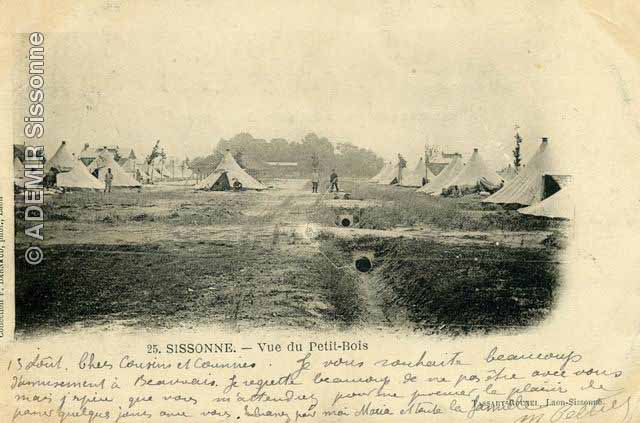 © ADEMIR Sissonne
25. SISSONNE. — Vue du Petit-Bois
13 Août. Chers Cousins et Cousines. Je vous souhaite beaucoup
d'amusement à Beauvais. Je regrette beaucoup de ne pas être avec vous
mais j'espère que vous m'attendrez pour me procurer le plaisir de
passer quelques jours avec vous. Embrassez pour moi Maria et toute la famille
Tassart-Rouxel, Laon-Sissonne.
Collection P. phot., Laon